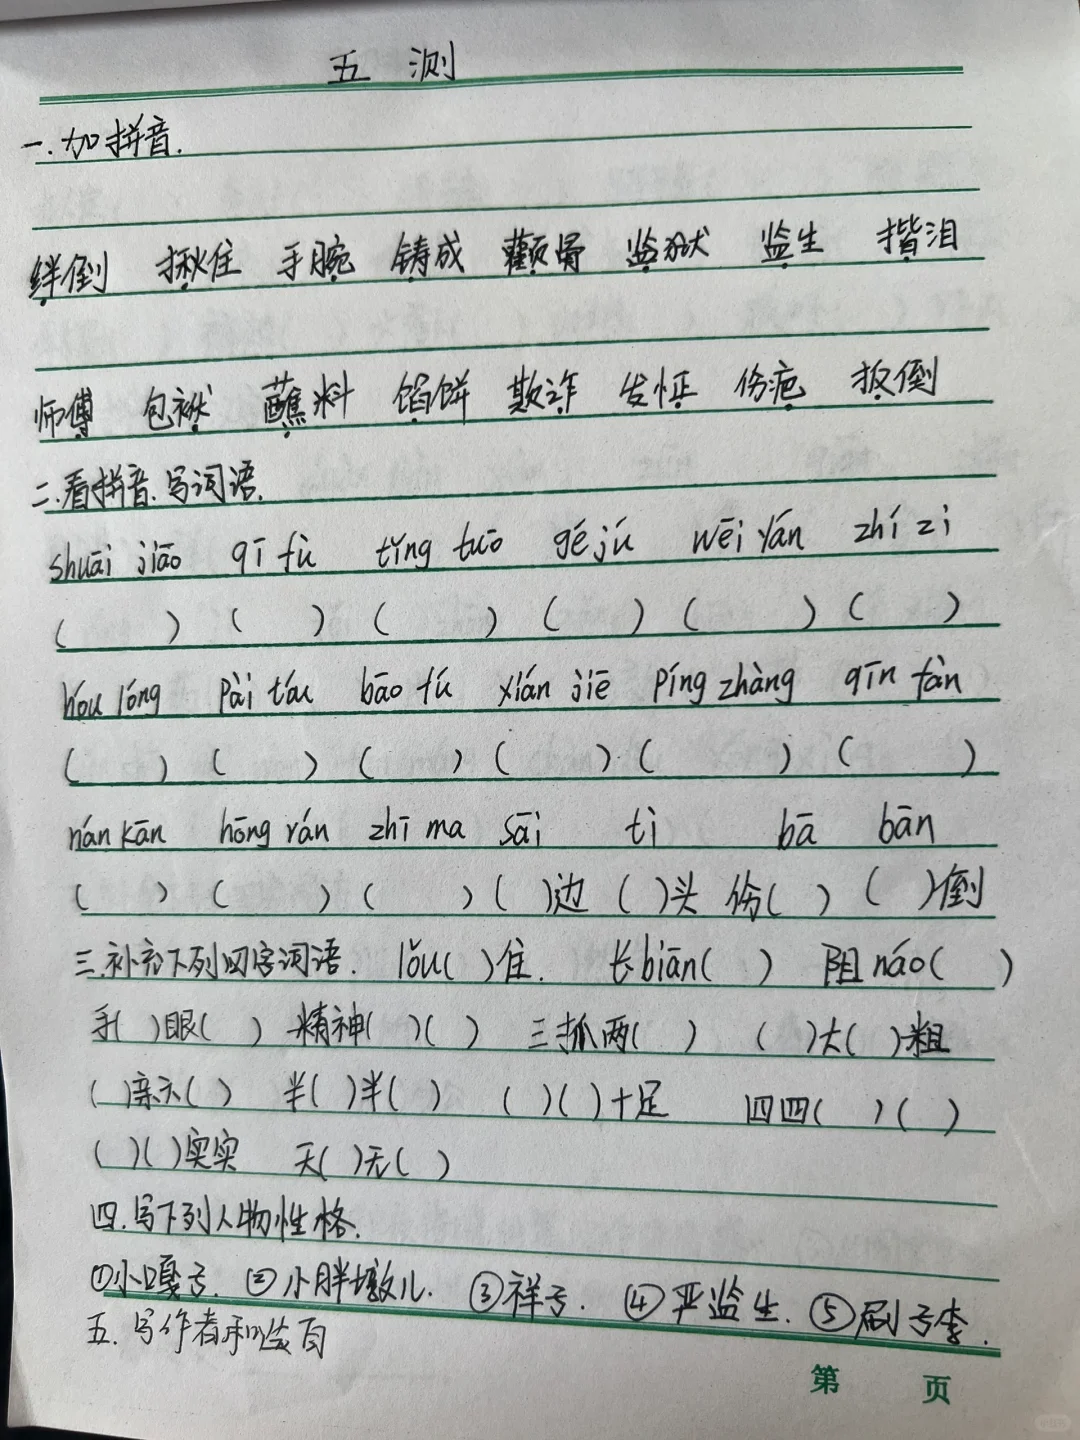 五 测
一.加拼音.
绊倒 揪住 手腕 铸成 颧骨 监狱 监生 揩泪
师傅 包袱 蘸料 馅饼 欺诈 发怔 伤疤 扳倒
二.看拼音.写词语.
shuāi jiāo qī fù tǐng tuō gé jú wēi yán zhí zi
( ) ( ) ( ) ( ) ( ) ( )
hóu lóng pài tóu bāo fú xián jiē píng zhàng qīn fàn
( ) ( ) ( ) ( ) ( ) ( )
nán kān hōng rán zhī ma sāi tì bā bān
( ) ( ) ( ) ( )边 ( )头 伤( ) ( )倒
三.补充下列四字词语. lǒu( )住. 长biān( ) 阻náo( )
手( )眼( ) 精神( )( ) 三抓两( ) ( )大( )粗
( )亲六( ) 半( )半( ) ( )( )十足 四四( )( )
( )( )实实 天( )无( )
四.写下列人物性格.
①小嘎子. ②小胖墩儿. ③祥子. ④严监生. ⑤刷子李.
五.写作者和出自
第 页